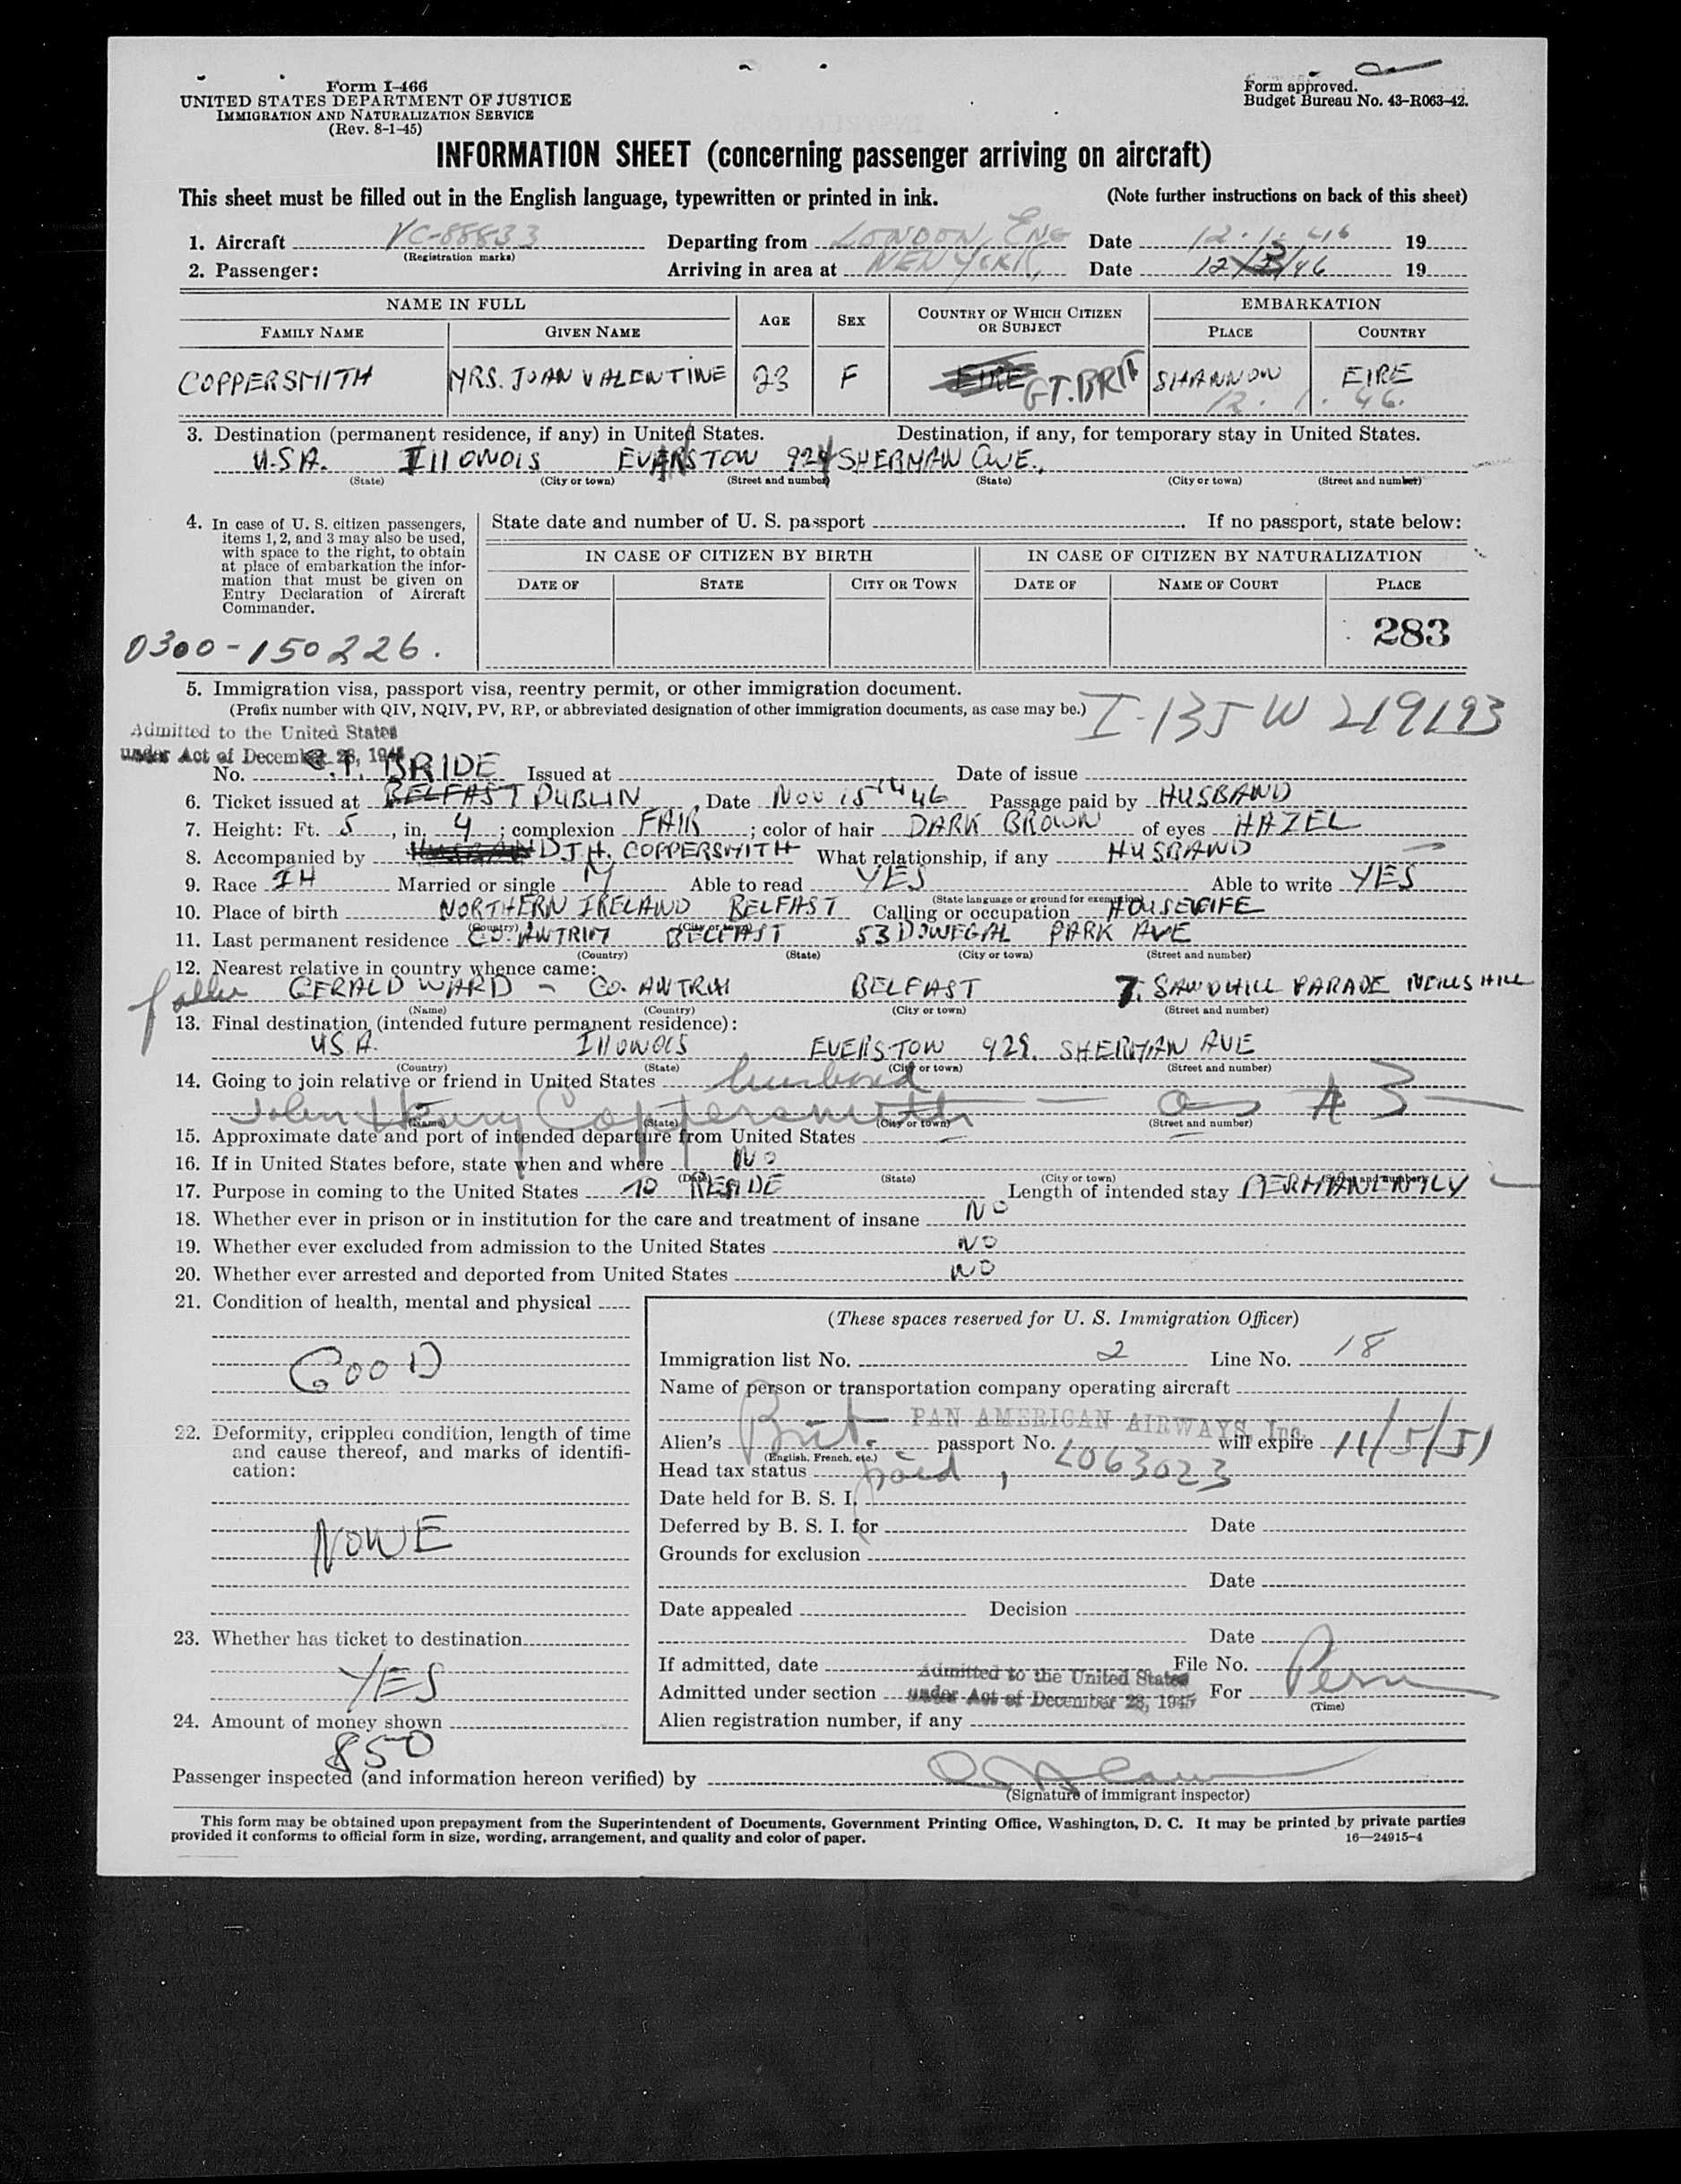 Form I-466
UNITED STATES DEPARTMENT OF JUSTICE
IMMIGRATION AND NATURALIZATION SERVICE
(Rev. 8-1-45)
Form approved.
Budget Bureau No. 43-R063-42.
INFORMATION SHEET (concerning passenger arriving on aircraft)
This sheet must be filled out in the English language, typewritten or printed in ink. (Note further instructions on back of this sheet)
1. Aircraft C-88833 Departing from LONDON, ENG Date 12.1.46 19
(Registration marks)
2. Passenger: Arriving in area at NEW YORK, Date 12/ /46 19
NAME IN FULL AGE SEX COUNTRY OF WHICH CITIZEN OR SUBJECT EMBARKATION
FAMILY NAME GIVEN NAME PLACE COUNTRY
COPPERSMITH MRS. JOAN VALENTINE 23 F EIRE GT. BRIT SHANNON EIRE
12. 1. 46.
3. Destination (permanent residence, if any) in United States. Destination, if any, for temporary stay in United States.
U.S.A. IllONOIS EVANSTON 929 SHERMAN AVE.,
(State) (City or town) (Street and number) (State) (City or town) (Street and number)
4. In case of U. S. citizen passengers, items 1, 2, and 3 may also be used, with space to the right, to obtain at place of embarkation the information that must be given on Entry Declaration of Aircraft Commander.
State date and number of U. S. passport . If no passport, state below:
IN CASE OF CITIZEN BY BIRTH IN CASE OF CITIZEN BY NATURALIZATION
DATE OF STATE CITY OR TOWN DATE OF NAME OF COURT PLACE
283
0300-150226.
5. Immigration visa, passport visa, reentry permit, or other immigration document.
(Prefix number with QIV, NQIV, PV, RP, or abbreviated designation of other immigration documents, as case may be.) I-135 W 219193
Admitted to the United States
under Act of December 28, 1945
No. G.I. BRIDE Issued at Date of issue
6. Ticket issued at BELFAST DUBLIN Date NOV 15th 46 Passage paid by HUSBAND
7. Height: Ft. 5, in. 4; complexion FAIR; color of hair DARK BROWN of eyes HAZEL
8. Accompanied by HUSBAND J.H. COPPERSMITH What relationship, if any HUSBAND
9. Race IH Married or single M Able to read YES Able to write YES
(State language or ground for exemption)
10. Place of birth NORTHERN IRELAND BELFAST Calling or occupation HOUSEWIFE
(Country) (City or town)
11. Last permanent residence CO. ANTRIM BELFAST 53 DONEGAL PARK AVE
(Country) (State) (City or town) (Street and number)
12. Nearest relative in country whence came:
father GERALD WARD - CO. ANTRIM BELFAST 7. SANDHILL PARADE NEILLS HILL
(Name) (Country) (City or town) (Street and number)
13. Final destination (intended future permanent residence):
U.S.A. IllONOIS EVERSTON 929. SHERMAN AVE
(Country) (State) (City or town) (Street and number)
14. Going to join relative or friend in United States husband
John Henry Coppersmith — as #3 —
(Name) (State) (City or town) (Street and number)
15. Approximate date and port of intended departure from United States
16. If in United States before, state when and where NO
(Date) (State) (City or town) (Street and number)
17. Purpose in coming to the United States TO RESIDE Length of intended stay PERMANENTLY
18. Whether ever in prison or in institution for the care and treatment of insane NO
19. Whether ever excluded from admission to the United States NO
20. Whether ever arrested and deported from United States NO
21. Condition of health, mental and physical
GOOD
22. Deformity, crippled condition, length of time and cause thereof, and marks of identification:
NONE
23. Whether has ticket to destination
YES
24. Amount of money shown
850
(These spaces reserved for U. S. Immigration Officer)
Immigration list No. 2 Line No. 18
Name of person or transportation company operating aircraft
PAN AMERICAN AIRWAYS, Inc.
Alien's Brit. passport No. L063023 will expire 11/5/51
(English, French, etc.)
Head tax status paid,
Date held for B. S. I.
Deferred by B. S. I. for Date
Grounds for exclusion
Date
Date appealed Decision
Date
If admitted, date File No.
Admitted to the United States
under Act of December 28, 1945
Admitted under section For Perm
(Time)
Alien registration number, if any
Passenger inspected (and information hereon verified) by
(Signature of immigrant inspector)
This form may be obtained upon prepayment from the Superintendent of Documents, Government Printing Office, Washington, D. C. It may be printed by private parties
provided it conforms to official form in size, wording, arrangement, and quality and color of paper. 16—24915-4